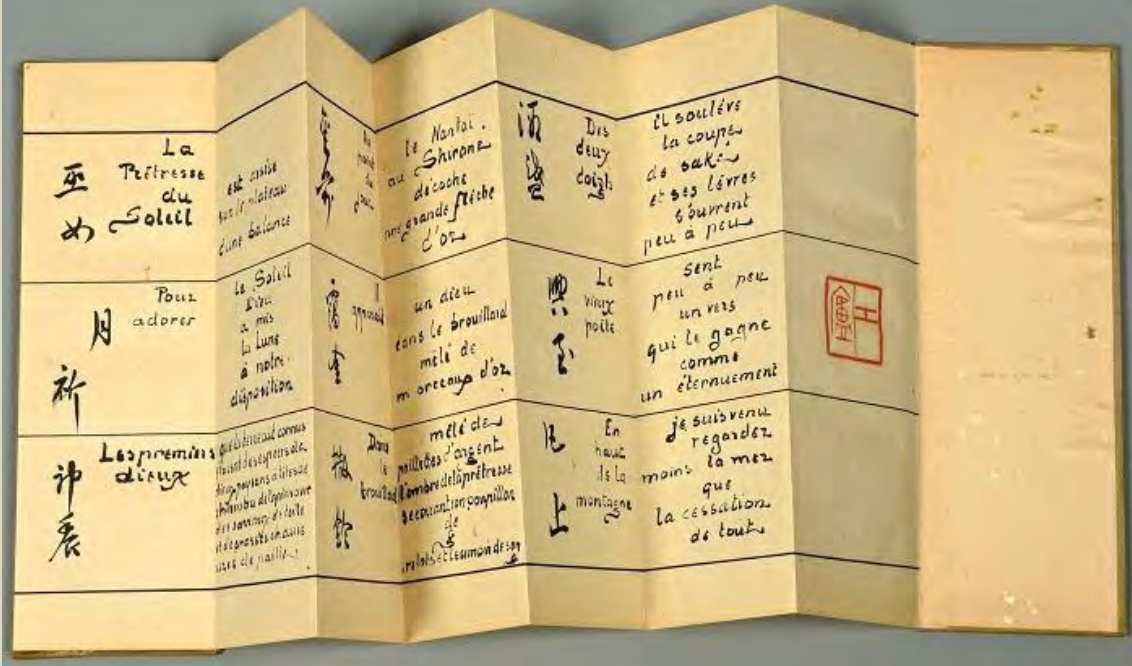 巫
女
La
Prêtresse
du
Soleil
est assise
sur le plateau
d'une balance
Au
point
du
jour
le Nantaï
au Shirane
décoche
une grande flèche
d'or
酒
盞
Des
deux
doigts
il soulève
la coupe
de saké
et ses lèvres
s'ouvrent
peu à peu
月
祈
Pour
adorer
le Soleil
Dieu
a mis
la Lune
à notre
disposition
apparaît
un dieu
dans le brouillard
mêlé de
morceaux d'or
興
至
Le
vieux
poète
sent
peu à peu
un vers
qui le gagne
comme
un éternuement
Les premiers
dieux
que la terre ait connus
étaient des espèces de
Dans
le
brouillard
mêlé de
paillettes d'argent
l'ombre de la prêtresse
secouant son goupillon
de
上
En
haut
de la
montagne
je suis venu
regarder
moins la mer
que
la cessation
de tout